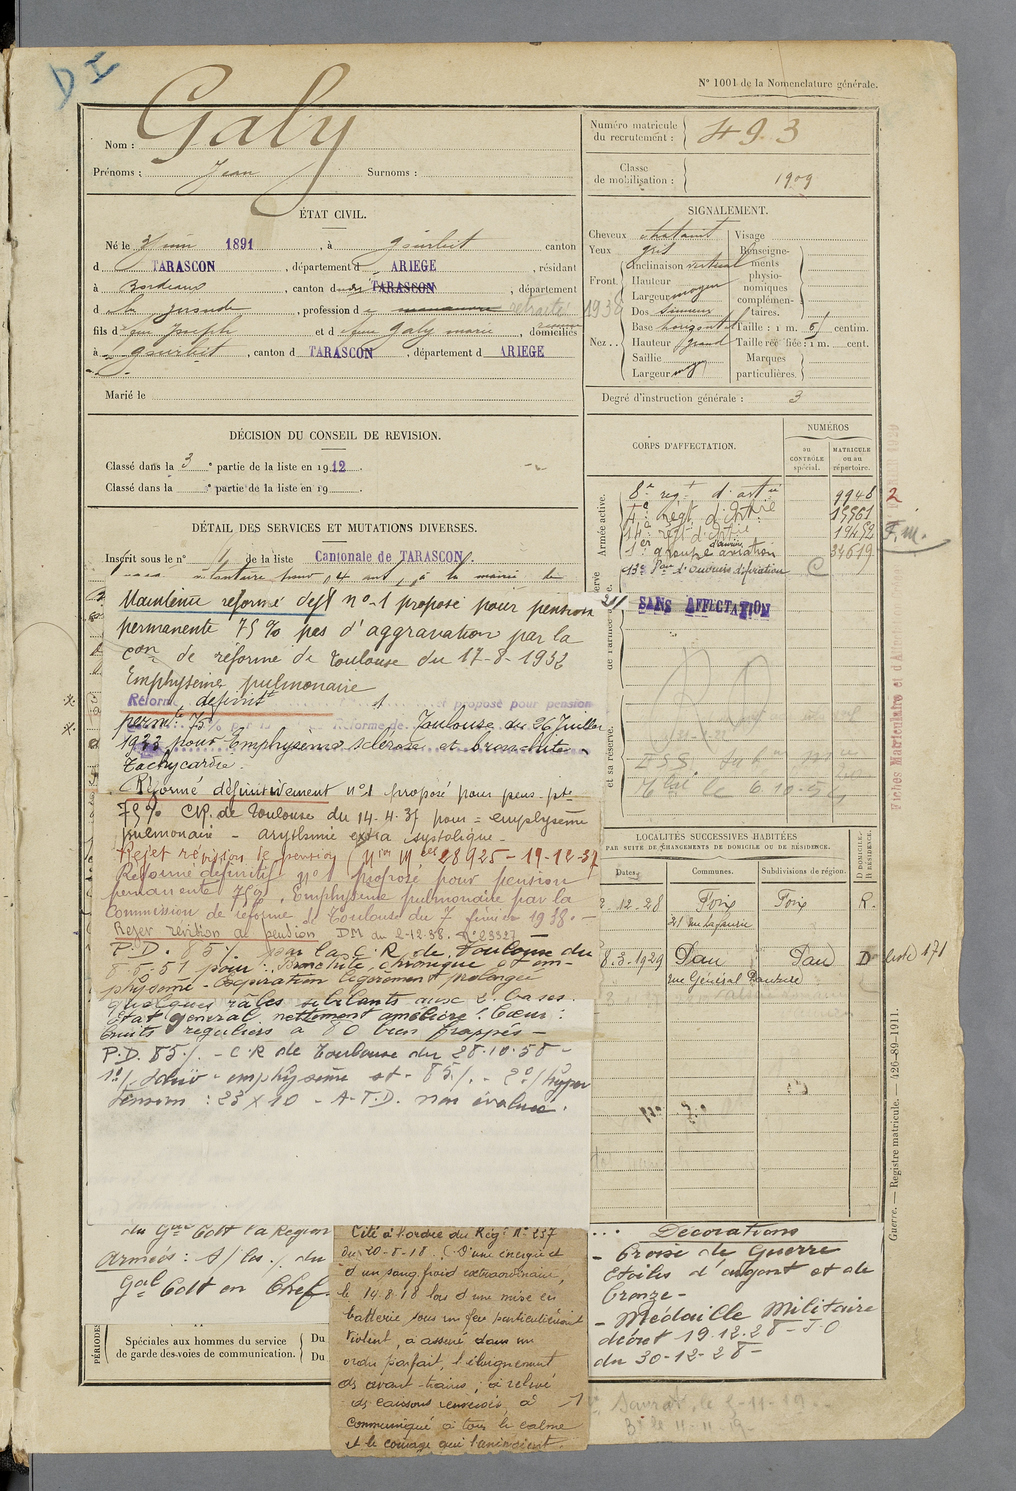 DI
N° 1001 de la Nomenclature générale.
Nom : Galy
Prénoms : Jean Surnoms :
Numéro matricule du recrutement : 493
Classe de mobilisation : 1909
ÉTAT CIVIL.
Né le 3 juin 1891, à Gourbit canton
d TARASCON, département d ARIEGE, résidant
à Bordeaux, canton d TARASCON, département
d la Gironde, profession d retraité 1938
fils d Joseph et d Galy Marie, domiciliés
à Gourbit, canton d TARASCON, département d ARIEGE
Marié le
SIGNALEMENT.
Cheveux chatains Visage
Yeux gris
Front Inclinaison vertical
Hauteur
Largeur moyen
Nez Dos sinueux
Base horizontal
Hauteur grand
Saillie
Largeur moy
Renseignements physionomiques complémentaires.
Taille : 1 m. 61 centim.
Taille rectifiée : 1 m. cent.
Marques particulières.
Degré d'instruction générale : 3
DÉCISION DU CONSEIL DE REVISION.
Classé dans la 3e partie de la liste en 1912.
Classé dans la e partie de la liste en 19
DÉTAIL DES SERVICES ET MUTATIONS DIVERSES.
Inscrit sous le n° de la liste Cantonale de TARASCON
à la mairie de
Maintenu réformé deft n°-1 proposé pour pension
permanente 75 % pas d'aggravation par la
con de réforme de Toulouse du 17-8-1932
Emphyseme pulmonaire
Réformé définitt 1 et proposé pour pension
permte 75% Réforme de Toulouse du 26 Juillet
1933 pour Emphyseme sclerose et bronchite
Tachycardie.
Réformé définitivement n°1 proposé pour pens. pte
75% C.R. de Toulouse du 14-4-37 pour = emphyseme
pulmonaire - arythmie extra systolique -
Rejet révision de pension (Mion Mles 28925-19-12-37
Réformé définitif n°1 proposé pour pension
permanente 75% Emphyseme pulmonaire par la
Commission de réforme de Toulouse du 7 février 1938.-
Rejet révision de pension DM du 2-12-38. N° 23327
P.D. 85% par la C.R. de Toulouse du
8.6.51 pour : Bronchite chronique et em-
physème - Expiration légèrement prolongée
quelques râles sibilants aux 2 bases.
Etat général nettement amélioré. Cœur :
bruits réguliers à 80 bien frappés -
P.D. 85%. - C.R de Toulouse du 28.10.58 -
emphysème et - 85%. - 2°/ hyper
tension : 23 X 10 - A.T.D. non évalué.
CORPS D'AFFECTATION.
NUMÉROS
au CONTRÔLE spécial.
MATRICULE ou au répertoire.
Armée active.
8e régt d'artie 9948 2
4e Régt d'Infie 15561
14e régt d'Infie 19452
1er groupe d'aviation 34619
13e d'ouvriers d'aviation
F.M.
SANS AFFECTATION
de l'armée active.
et sa réserve.
le 6.10.54
Fiches Matriculaire et d'Aff
LOCALITÉS SUCCESSIVES HABITÉES
PAR SUITE DE CHANGEMENTS DE DOMICILE OU DE RÉSIDENCE.
Dates. Communes. Subdivisions de région. D DOMICILE. R RÉSIDENCE.
2-12-28 Foix Foix R.
21 rue Lafaurie
8.3.1929 Pau Pau D liste 171
rue Général Dauture
Guerre. — Registre matricule. — 426-89-1911.
du Gal Cdt la Région
Armées : du
Gal Cdt en Chef.
Cité à l'ordre du Régt N° 237
du 20-8-18. "D'une énergie et
d'un sang froid extraordinaire,
le 14.8.18 lors d'une mise en
batterie sous un feu particulièrement
violent, a assuré dans un
ordre parfait, l'éloignement
des avant-trains ; a relevé
des caissons renversés, a
communiqué à tous le calme
et le courage qui l'animaient.
Decorations
- Croix de Guerre
Etoiles d'argent et de
bronze -
- Médaille Militaire
décret 19.12.28 - J.O
du 30-12-28 -
PÉRIODES
Spéciales aux hommes du service
de garde des voies de communication.
Du
Du
Savrat, le 5-11-19